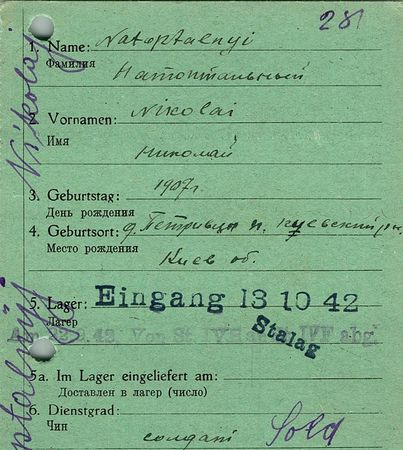 281
1. Name: Natoptalnyi
Фамилия
Натоптальный
2. Vornamen: Nikolai
Имя
Николай
1907г.
3. Geburtstag:
День рождения
4. Geburtsort: д. Петривцы
Место рождения
Киев об.
5. Lager: Eingang 13 10 42
Лагерь
Stalag
5a. Im Lager eingeliefert am:
Доставлен в лагерь (число)
6. Dienstgrad:
Чин
солдат Sold
Nikolaj